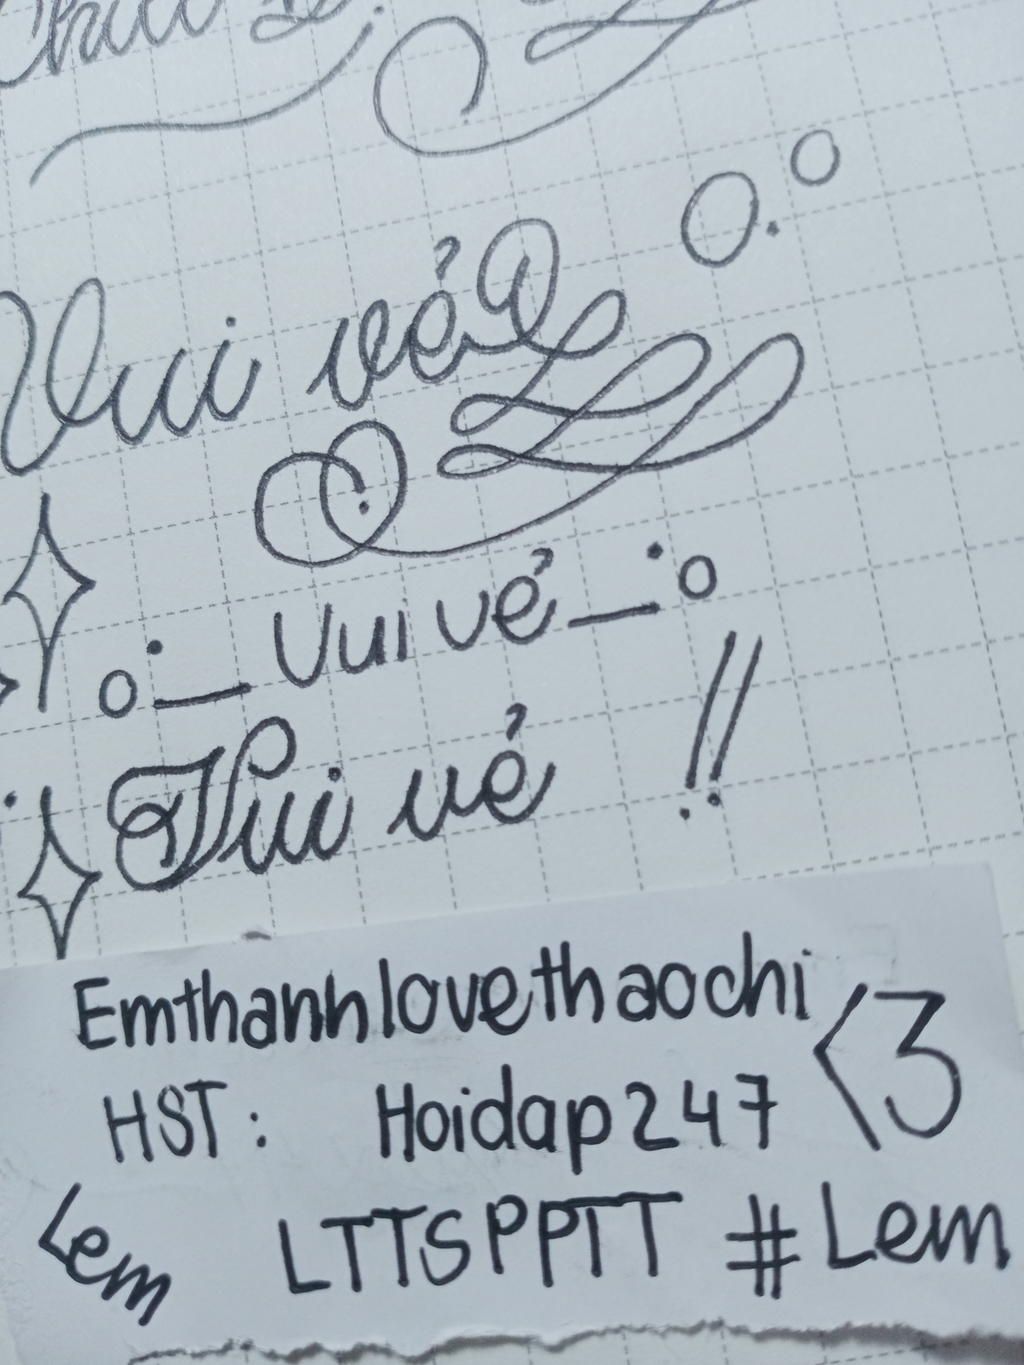 Vui vẻ
Vui vẻ
Vui vẻ !!
Emthanhlovethaochi <3
HST: Hoidap247
Lem LTTSPPTT #Lem